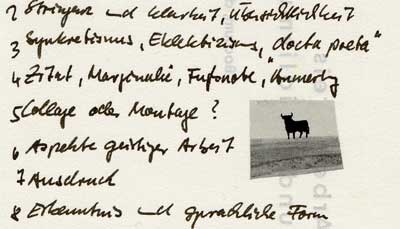 2 Stringenz und Klarheit, Übersichtlichkeit
3 Synkretismus, Eklektizismus, "docta poeta"
4 Zitat, Marginalie, Fußnote, Anmerkg
5 Collage oder Montage?
6 Aspekte geistiger Arbeit
7 Ausdruck
8 Erkenntnis und sprachliche Form